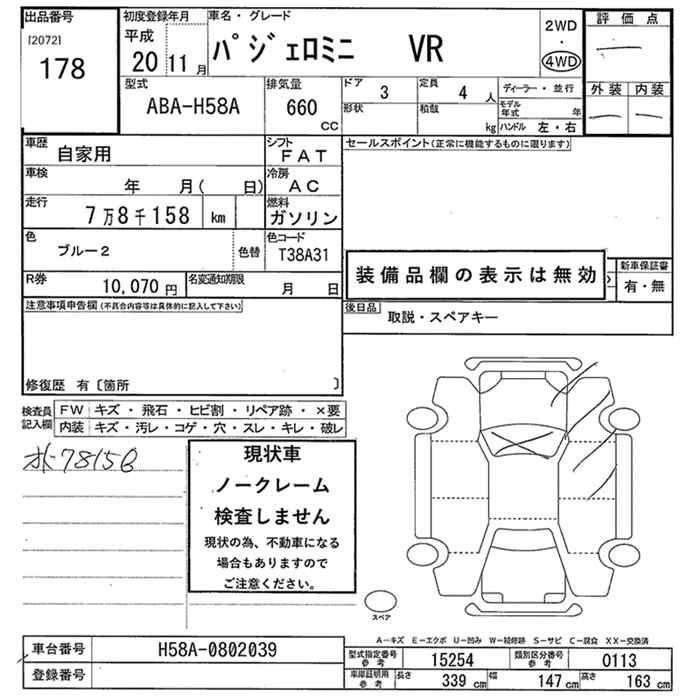 出品番号
[2072]
178
初度登録年月
平成
20 11 月
車名・グレード
パジェロミニ VR
2WD
・
4WD
評価点
外装 内装
型式
ABA-H58A
排気量
660
cc
ドア 3
形状
定員 4 人
積載 kg
ディーラー・並行
モデル年式 年
ハンドル 左・右
車歴
自家用
シフト
FAT
セールスポイント(正常に機能するものに限ります)
車検
年 月( 日)
冷房
AC
走行
7万8千158 km
燃料
ガソリン
色
ブルー2
色替
色コード
T38A31
装備品欄の表示は無効
新車保証書
有・無
R券
10,070 円
名変通知期限
月 日
後日品
取説・スペアキー
注意事項申告欄(不具合内容等は具体的に記入して下さい)
修復歴 有〔箇所 〕
検査員記入欄
FW キズ・飛石・ヒビ割・リペア跡・×要
内装 キズ・汚レ・コゲ・穴・スレ・キレ・破レ
現状車
ノークレーム
検査しません
現状の為、不動車になる
場合もありますので
ご注意ください。
スペア
A-キズ E-エクボ U-凹み W-補修跡 S-サビ C-腐食 XX-交換済
車台番号
H58A-0802039
登録番号
型式指定番号
参考
15254
類別区分番号
参考
0113
車庫証明用
参考
長さ 339 cm
幅 147 cm
高さ 163 cm